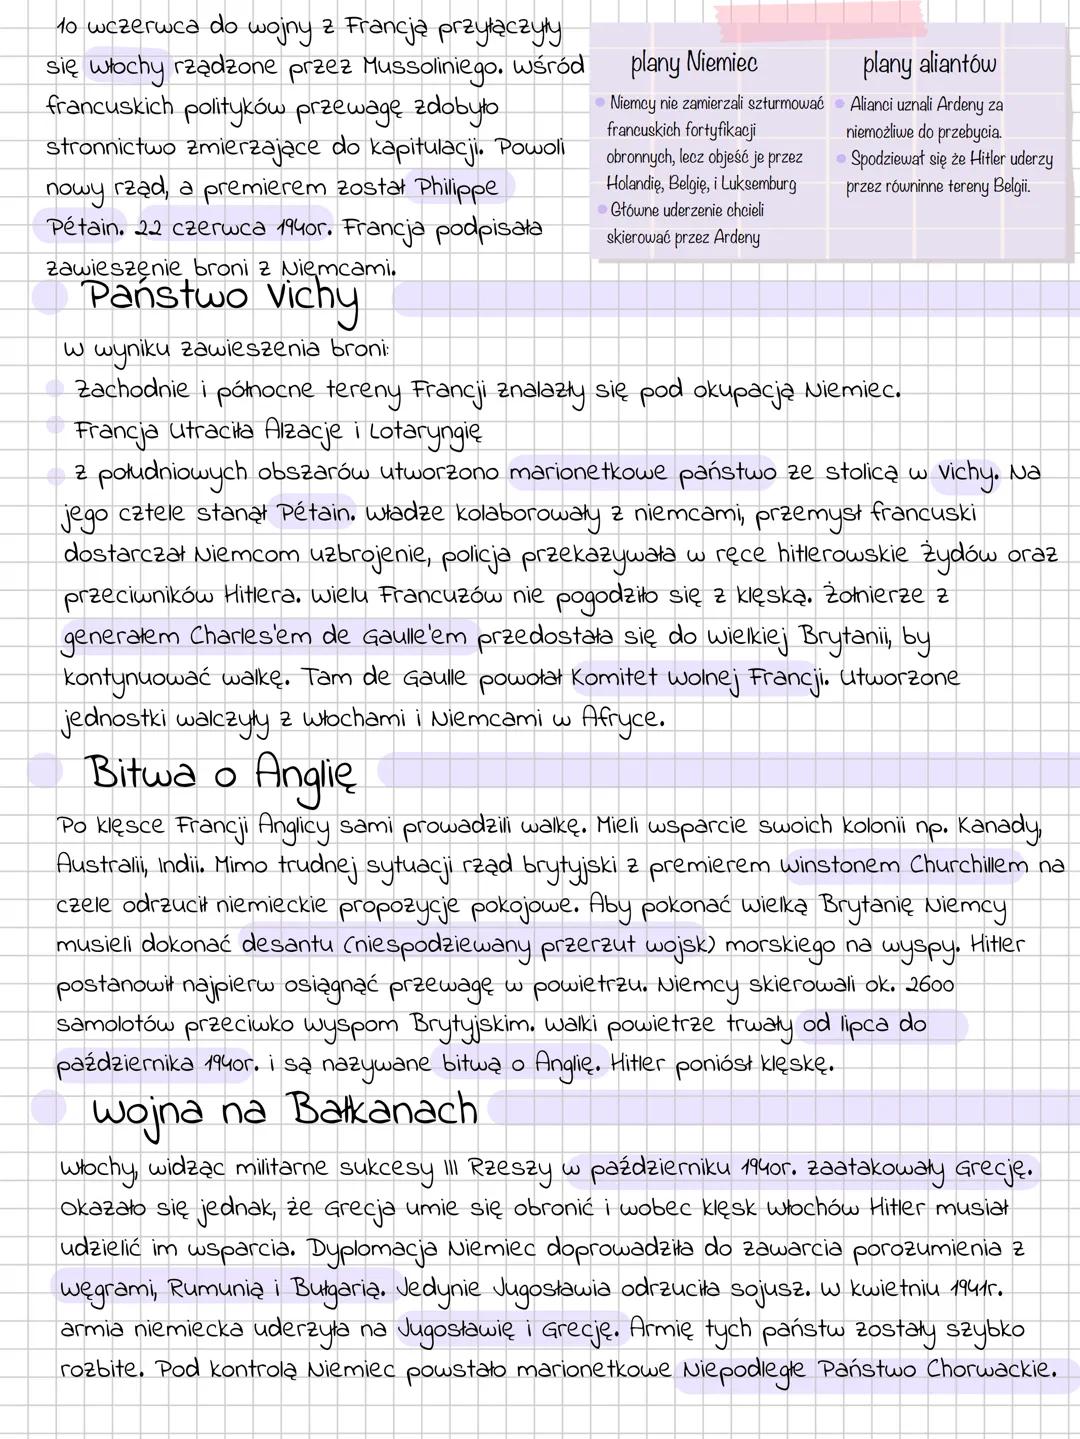 10 wczerwca do wojny z Francją przyłączyły
się Włochy rządzone przez Mussoliniego. Wśród
francuskich polityków przewagę zdobyło
stronnictwo zmierzające do kapitulacji. Powoli
nowy rząd, a premierem został Philippe
Pétain. 22 czerwca 1940r. Francja podpisała
zawieszenie broni z Niemcami.
plany Niemiec
Niemcy nie zamierzali szturmować
francuskich fortyfikacji
obronnych, lecz objeść je przez
Holandię, Belgię, i Luksemburg
Główne uderzenie chcieli
skierować przez Ardeny
plany aliantów
Alianci uznali Ardeny za
niemożliwe do przebycia.
Spodziewał się że Hitler uderzy
przez równinne tereny Belgii.
Państwo Vichy
W wyniku zawieszenia broni:
Zachodnie i północne tereny Francji znalazły się pod okupacją Niemiec.
Francja Utraciła Alzacje i Lotaryngię
z południowych obszarów utworzono marionetkowe państwo ze stolicą w Vichy. Na
jego cztele stanął Pétain. Władze kolaborowały z niemcami, przemysł francuski
dostarczał Niemcom uzbrojenie, policja przekazywała w ręce hitlerowskie Żydów oraz
przeciwników Hitlera. Wielu Francuzów nie pogodziło się z klęską. Żołnierze z
generałem Charles'em de Gaulle'em przedostała się do Wielkiej Brytanii, by
kontynuować walkę. Tam de Gaulle powołał Komitet Wolnej Francji. Utworzone
jednostki walczyły z Włochami i Niemcami w Afryce.
Bitwa o Anglię
Po klęsce Francji Anglicy sami prowadzili walkę. Mieli wsparcie swoich kolonii np. Kanady,
Australii, Indii. Mimo trudnej sytuacji rząd brytyjski z premierem Winstonem Churchillem na
czele odrzucił niemieckie propozycje pokojowe. Aby pokonać Wielką Brytanię Niemcy
musieli dokonać desantu (niespodziewany przerzut wojsk) morskiego na wyspy. Hitler
postanowił najpierw osiągnąć przewagę w powietrzu. Niemcy skierowali ok. 2600
samolotów przeciwko Wyspom Brytyjskim. Walki powietrze trwały od lipca do
października 1940r. i są nazywane bitwą o Anglię. Hitler poniósł klęskę.
Wojna na Bałkanach
Włochy, widząc militarne sukcesy III Rzeszy w październiku 1940r. zaatakowały Grecję.
Okazało się jednak, że Grecja umie się obronić i wobec klęsk Włochów Hitler musiał
udzielić im wsparcia. Dyplomacja Niemiec doprowadziła do zawarcia porozumienia z
Węgrami, Rumunią i Bułgarią. Jedynie Jugosławia odrzuciła sojusz. W kwietniu 1941r.
armia niemiecka uderzyła na Jugosławię i Grecję. Armię tych państw zostały szybko
rozbite. Pod kontrolą Niemiec powstało marionetkowe Niepodległe Państwo Chorwackie.